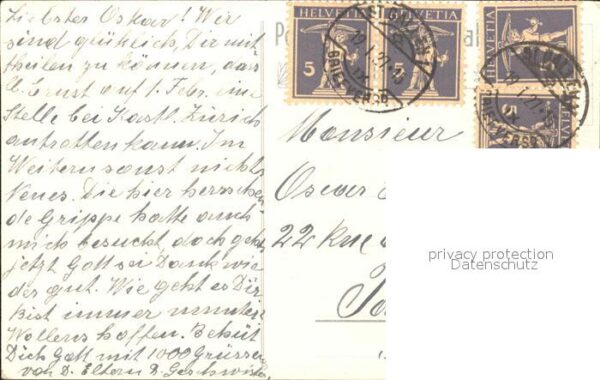 Liebster Oskar! Wir
sind glücklich, Dir mit
theilen zu können, das
l. Ernst auf 1. Febr. eine
Stelle bei Zürich
antretten kann. Im
Weitern sonst nichts
Neues. Die hier herrschen
de Grippe hatte auch
mich besucht, doch geht's
jetzt Gott sei Dank wie
der gut. Wie geht es Dir
Bist immer munter
Wollens hoffen. Behüt
Dich Gott mit 1000 Grüssen
von D. Eltern & Geschwister
HELVETIA
HELVETIA
HELVETIA
5
5
5
BRIEFVERSD.
Monsieur
Oscar
22 Rue
privacy protection
Datenschutz